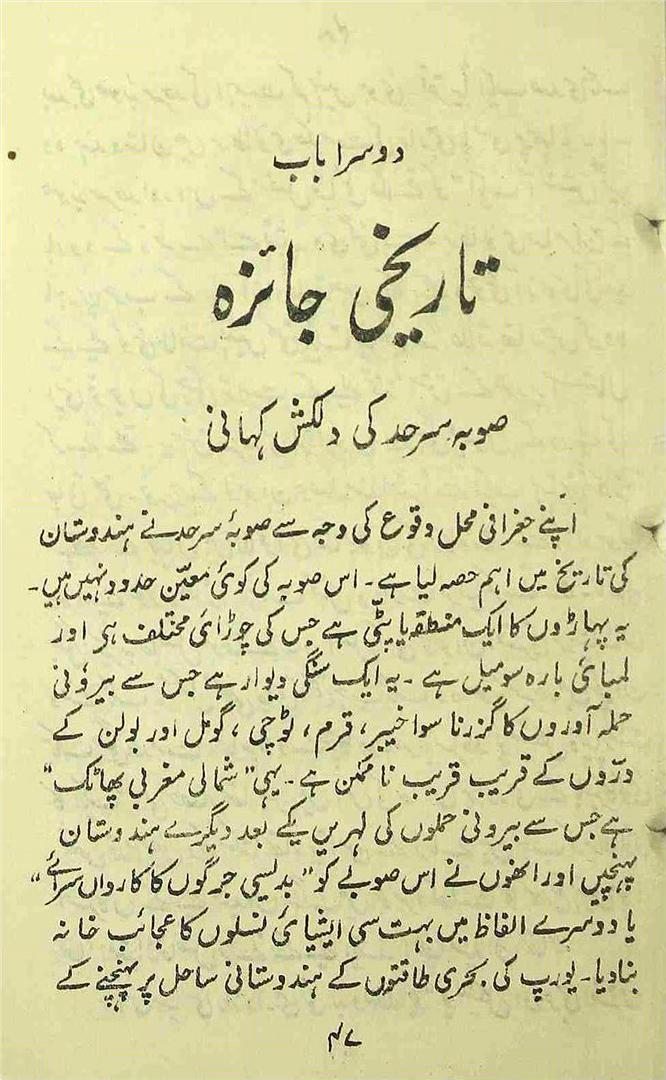 دوسرا باب
تاریخی جائزہ
صوبہ سرحد کی دلکش کہانی
اپنے جغرافی محل وقوع کی وجہ سے صوبۂ سرحد نے ہندوستان
کی تاریخ میں اہم حصہ لیا ہے۔ اس صوبہ کی کوئی معیّن حدود نہیں ہیں۔
یہ پہاڑوں کا ایک منطقہ یا پٹّی ہے جس کی چوڑائی مختلف ہی اور
لمبائی بارہ سو میل ہے۔ یہ ایک سنگی دیوار ہے جس سے بیرونی
حملہ آوروں کا گزرنا سوا خیبر، قرم، لوچی، گومل اور بولن کے
درّوں کے قریب قریب ناممکن ہے۔ یہی "شمالی مغربی پھاٹک"
ہے جس سے بیرونی حملوں کی لہریں یکے بعد دیگرے ہندوستان
پہنچیں اور انھوں نے اس صوبے کو "بدلیسی جرگوں کا کارواں سرائے"
یا دوسرے الفاظ میں بہت سی ایشیائی نسلوں کا عجائب خانہ
بنادیا۔ یورپ کی بحری طاقتوں کے ہندوستانی ساحل پر پہنچنے کے
۴۷